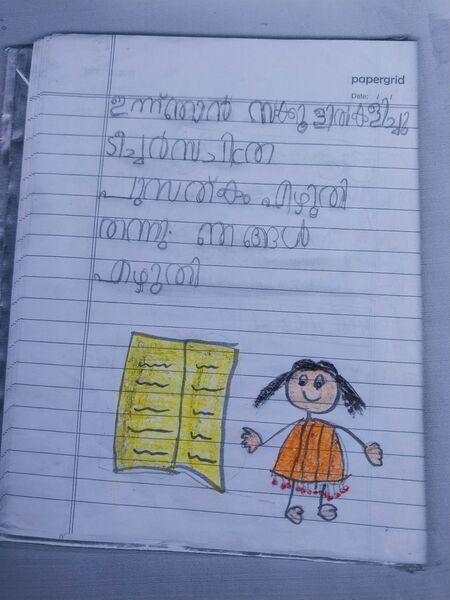 papergrid
Date:
ഇന്ന് ഞാൻ സ്ക്കൂളിൽ കളിച്ചു
ടീച്ചർ സചിത്ര
പുസതകം എഴുതി
തന്നു. ഞങ്ങൾ
എഴുതി